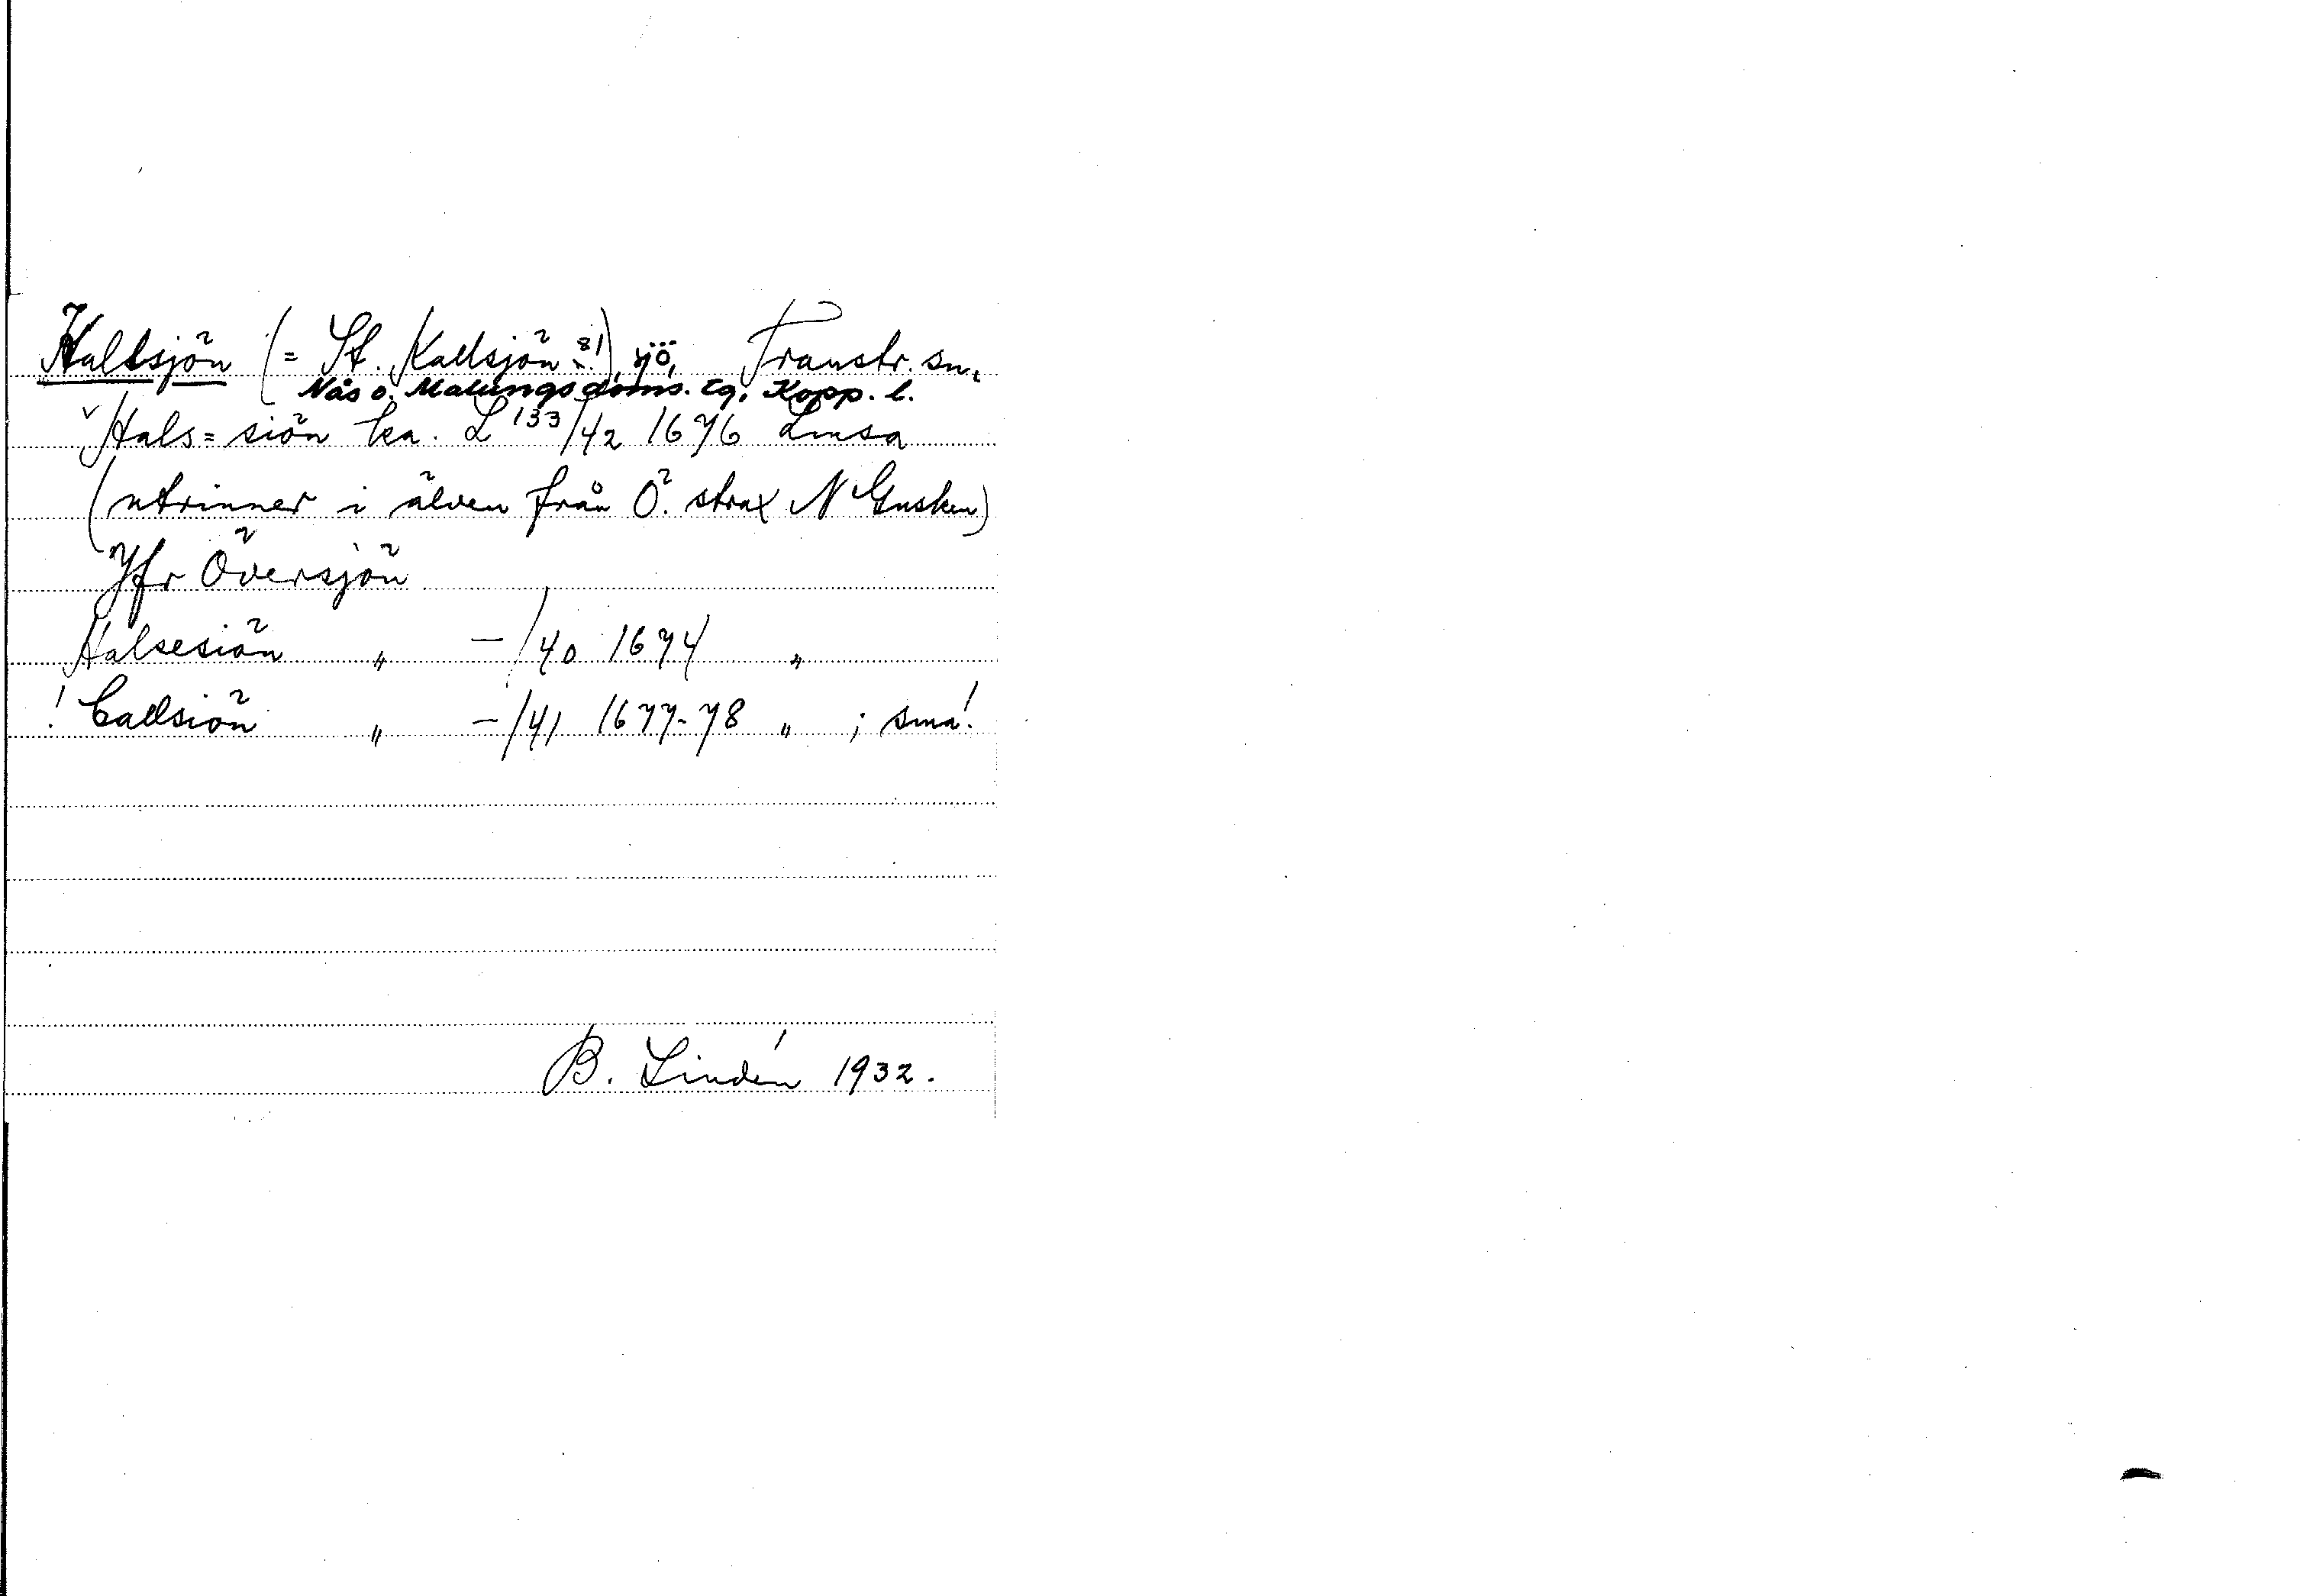 Hallsjön (= St. Kallsjön 81), sjö, Transtr. sn.
Nås o. Malungs doms. tg, Kopp. l.
v Hals=siön ka. L 133/42 1676 Limsa
(utrinner i älven från Ö. strax N Gusken)
Jfr Översjön
Halsesiön " -/40 1674 "
! Callsiön " -/41 1677-78 " ; små!
B. Lindén 1932.